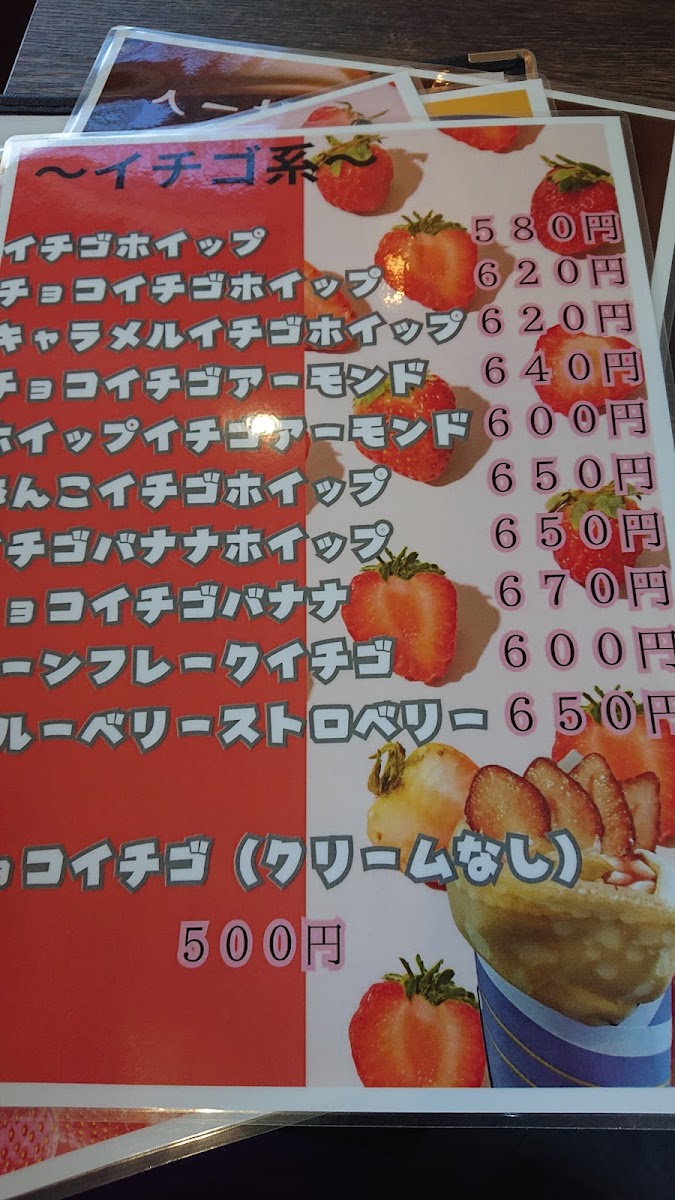 ～イチゴ系～
イチゴホイップ 580円
チョコイチゴホイップ 620円
キャラメルイチゴホイップ 620円
チョコイチゴアーモンド 640円
ホイップイチゴアーモンド 600円
あんこイチゴホイップ 650円
イチゴバナナホイップ 650円
ョコイチゴバナナ 670円
ーンフレークイチゴ 600円
ルーベリーストロベリー 650円
ョコイチゴ（クリームなし）
500円